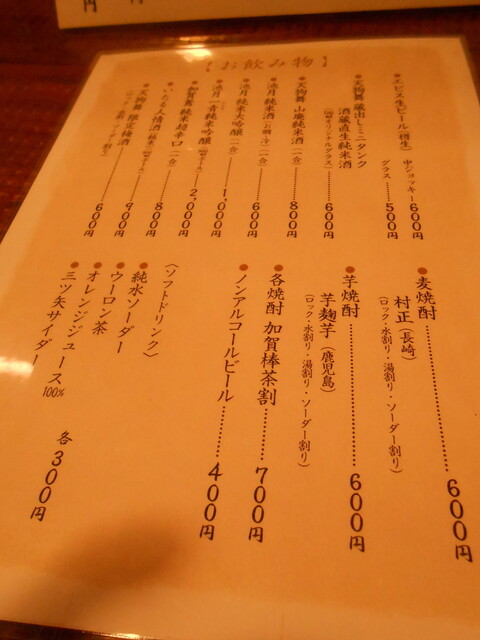 円
円
【お飲み物】
●エビス生ビール(樽生)
中ジョッキー 600円
グラス……500円
●天狗舞 蔵出しミニタンク
酒蔵直生純米酒
グラス)……600円
●天狗舞 山廃純米酒(一合)……800円
●池月 純米酒(お燗・冷)(一合)……600円
●池月 純米大吟醸(一合)……1,000円
●池月 一青純米吟醸
2,000円
●加賀鳶 純米超辛口(一合)
800円
●いたる人情酒 純米
900円
●天狗舞 限定梅酒
600円
●麦焼酎……600円
村正(長崎)
(ロック・水割り・湯割り・ソーダー割り)
●芋焼酎……600円
芋麹芋(鹿児島)
(ロック・水割り・湯割り・ソーダー割り)
●各焼酎 加賀棒茶割……700円
●ノンアルコールビール……400円
〈ソフトドリンク〉
●純水ソーダー
●ウーロン茶
●オレンジジュース100%
●三ツ矢サイダー
各300円